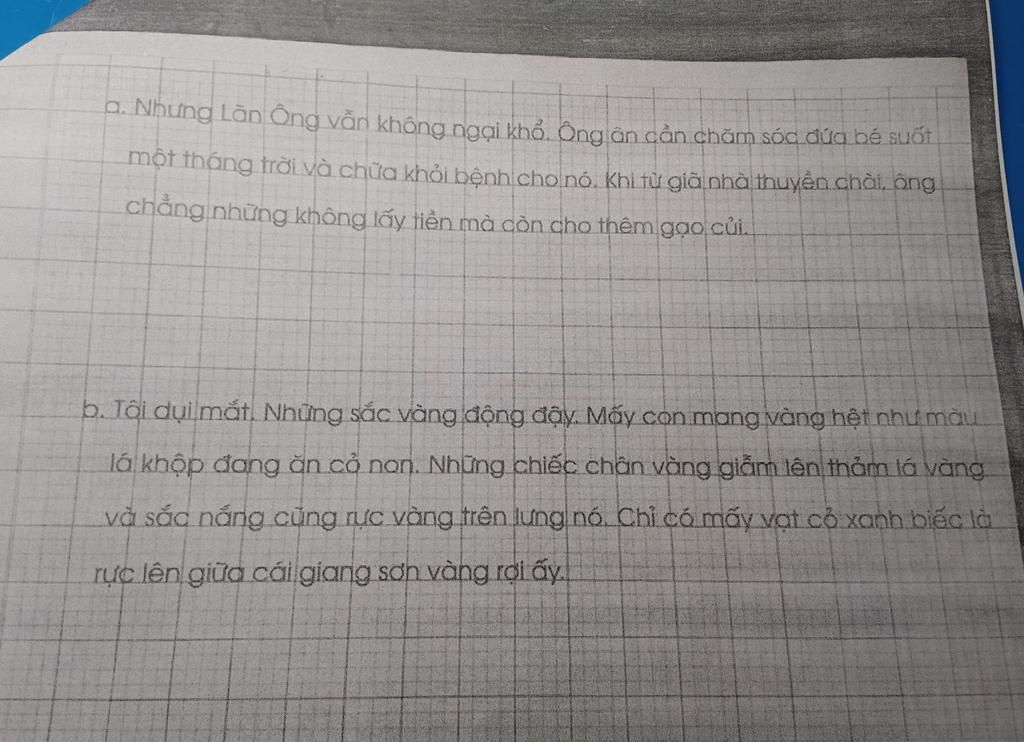 a. Nhưng Lãn Ông vẫn không ngại khổ. Ông ân cần chăm sóc đứa bé suốt
một tháng trời và chữa khỏi bệnh cho nó. Khi từ giã nhà thuyền chài, ông
chẳng những không lấy tiền mà còn cho thêm gạo củi.
b. Tôi dụi mắt. Những sắc vàng động đậy. Mấy con mang vàng hệt như màu
lá khộp đang ăn cỏ non. Những chiếc chân vàng giẫm lên thảm lá vàng
và sắc nắng cũng rực vàng trên lưng nó. Chỉ có mấy vạt cỏ xanh biếc là
rực lên giữa cái giang sơn vàng rợi ấy.